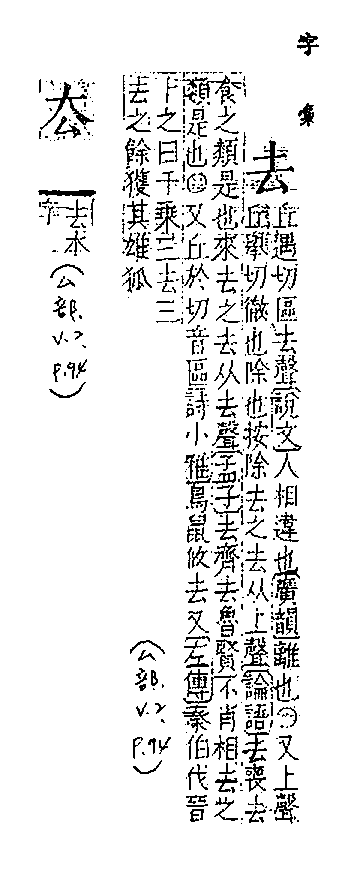 字彙
去
丘遇切區去聲說文人相違也廣韻離也○又上聲
丘舉切徹也除也按除去之去从上聲論語去喪去
食之類是也來去之去从去聲孟子去齊去魯賢不肖相去之
類是也○又丘於切音區詩小雅鳥鼠攸去又左傳秦伯伐晉
卜之曰千乘三去三
去之餘獲其雄狐
(厶部. V.2. P.94)
厺
去本字
(厶部. V.2. P.94)